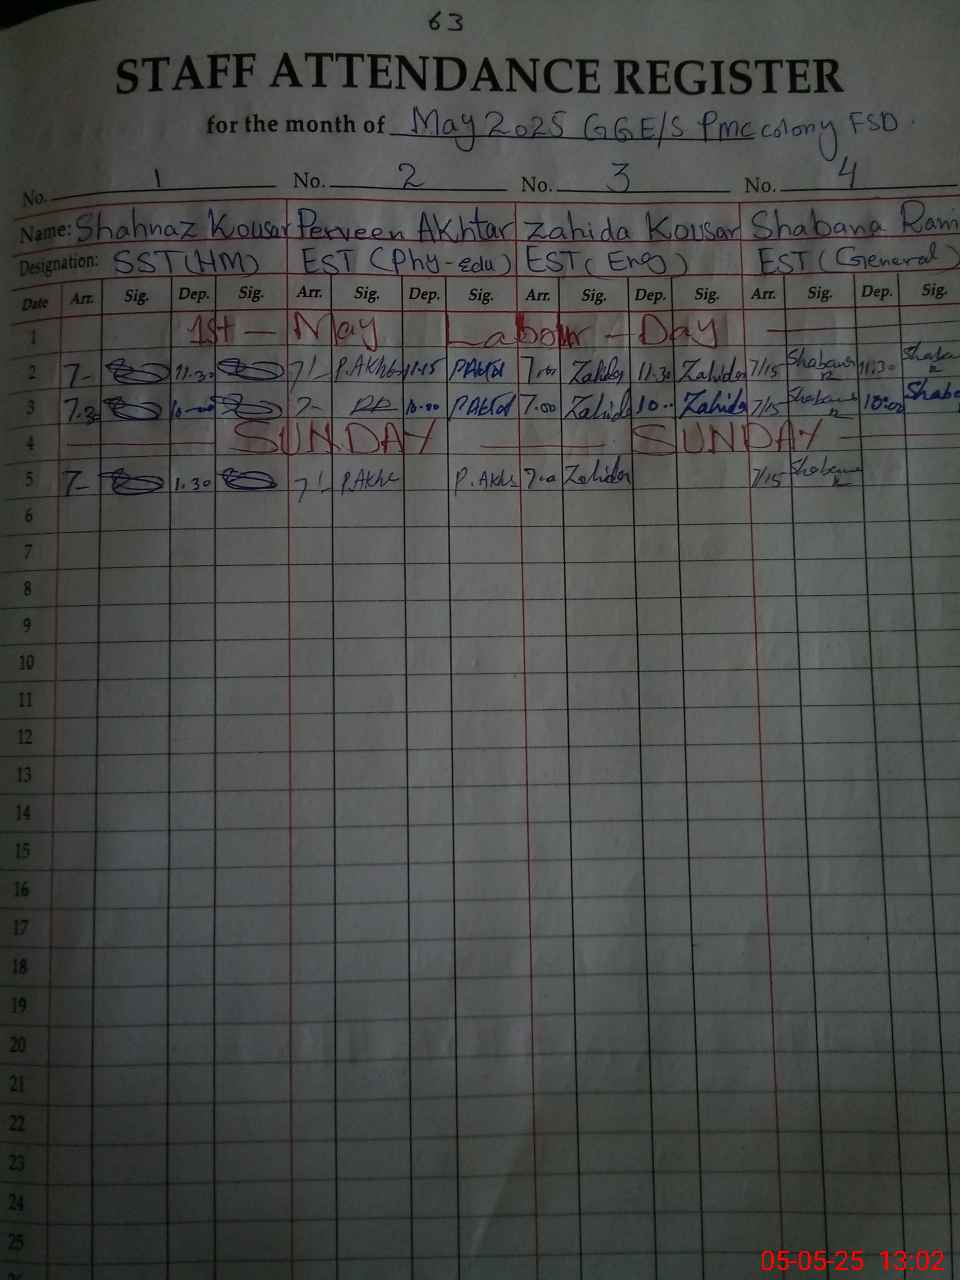 63
STAFF ATTENDANCE REGISTER
for the month of May 2025 GGE/S Pmc colony FSD.
No. 1 No. 2 No. 3 No. 4
Name: Shahnaz Kousar Perveen Akhtar Zahida Kousar Shabana Rani
Designation: SST (HM) EST (Phy-Edu) EST (Eng) EST (General)
Date Arr. Sig. Dep. Sig. Arr. Sig. Dep. Sig. Arr. Sig. Dep. Sig. Arr. Sig. Dep. Sig.
1 1st — May Labour - Day
2 7- 11.30 7/- P.Akh 11.15 PAkh 7.00 Zahida 11.30 Zahida 7/15 Shabana 11.30 Shaba
3 7.30 10-00 7- 10.00 PAkh 7.00 Zahida 10.. Zahida 7/15 Shabana 10:00 Shaba
4 SUNDAY SUNDAY
5 7- 1.30 7/- P.Akh P.Akh 7.00 Zahida 7/15 Shabana
6
7
8
9
10
11
12
13
14
15
16
17
18
19
20
21
22
23
24
25
05-05-25 13:02